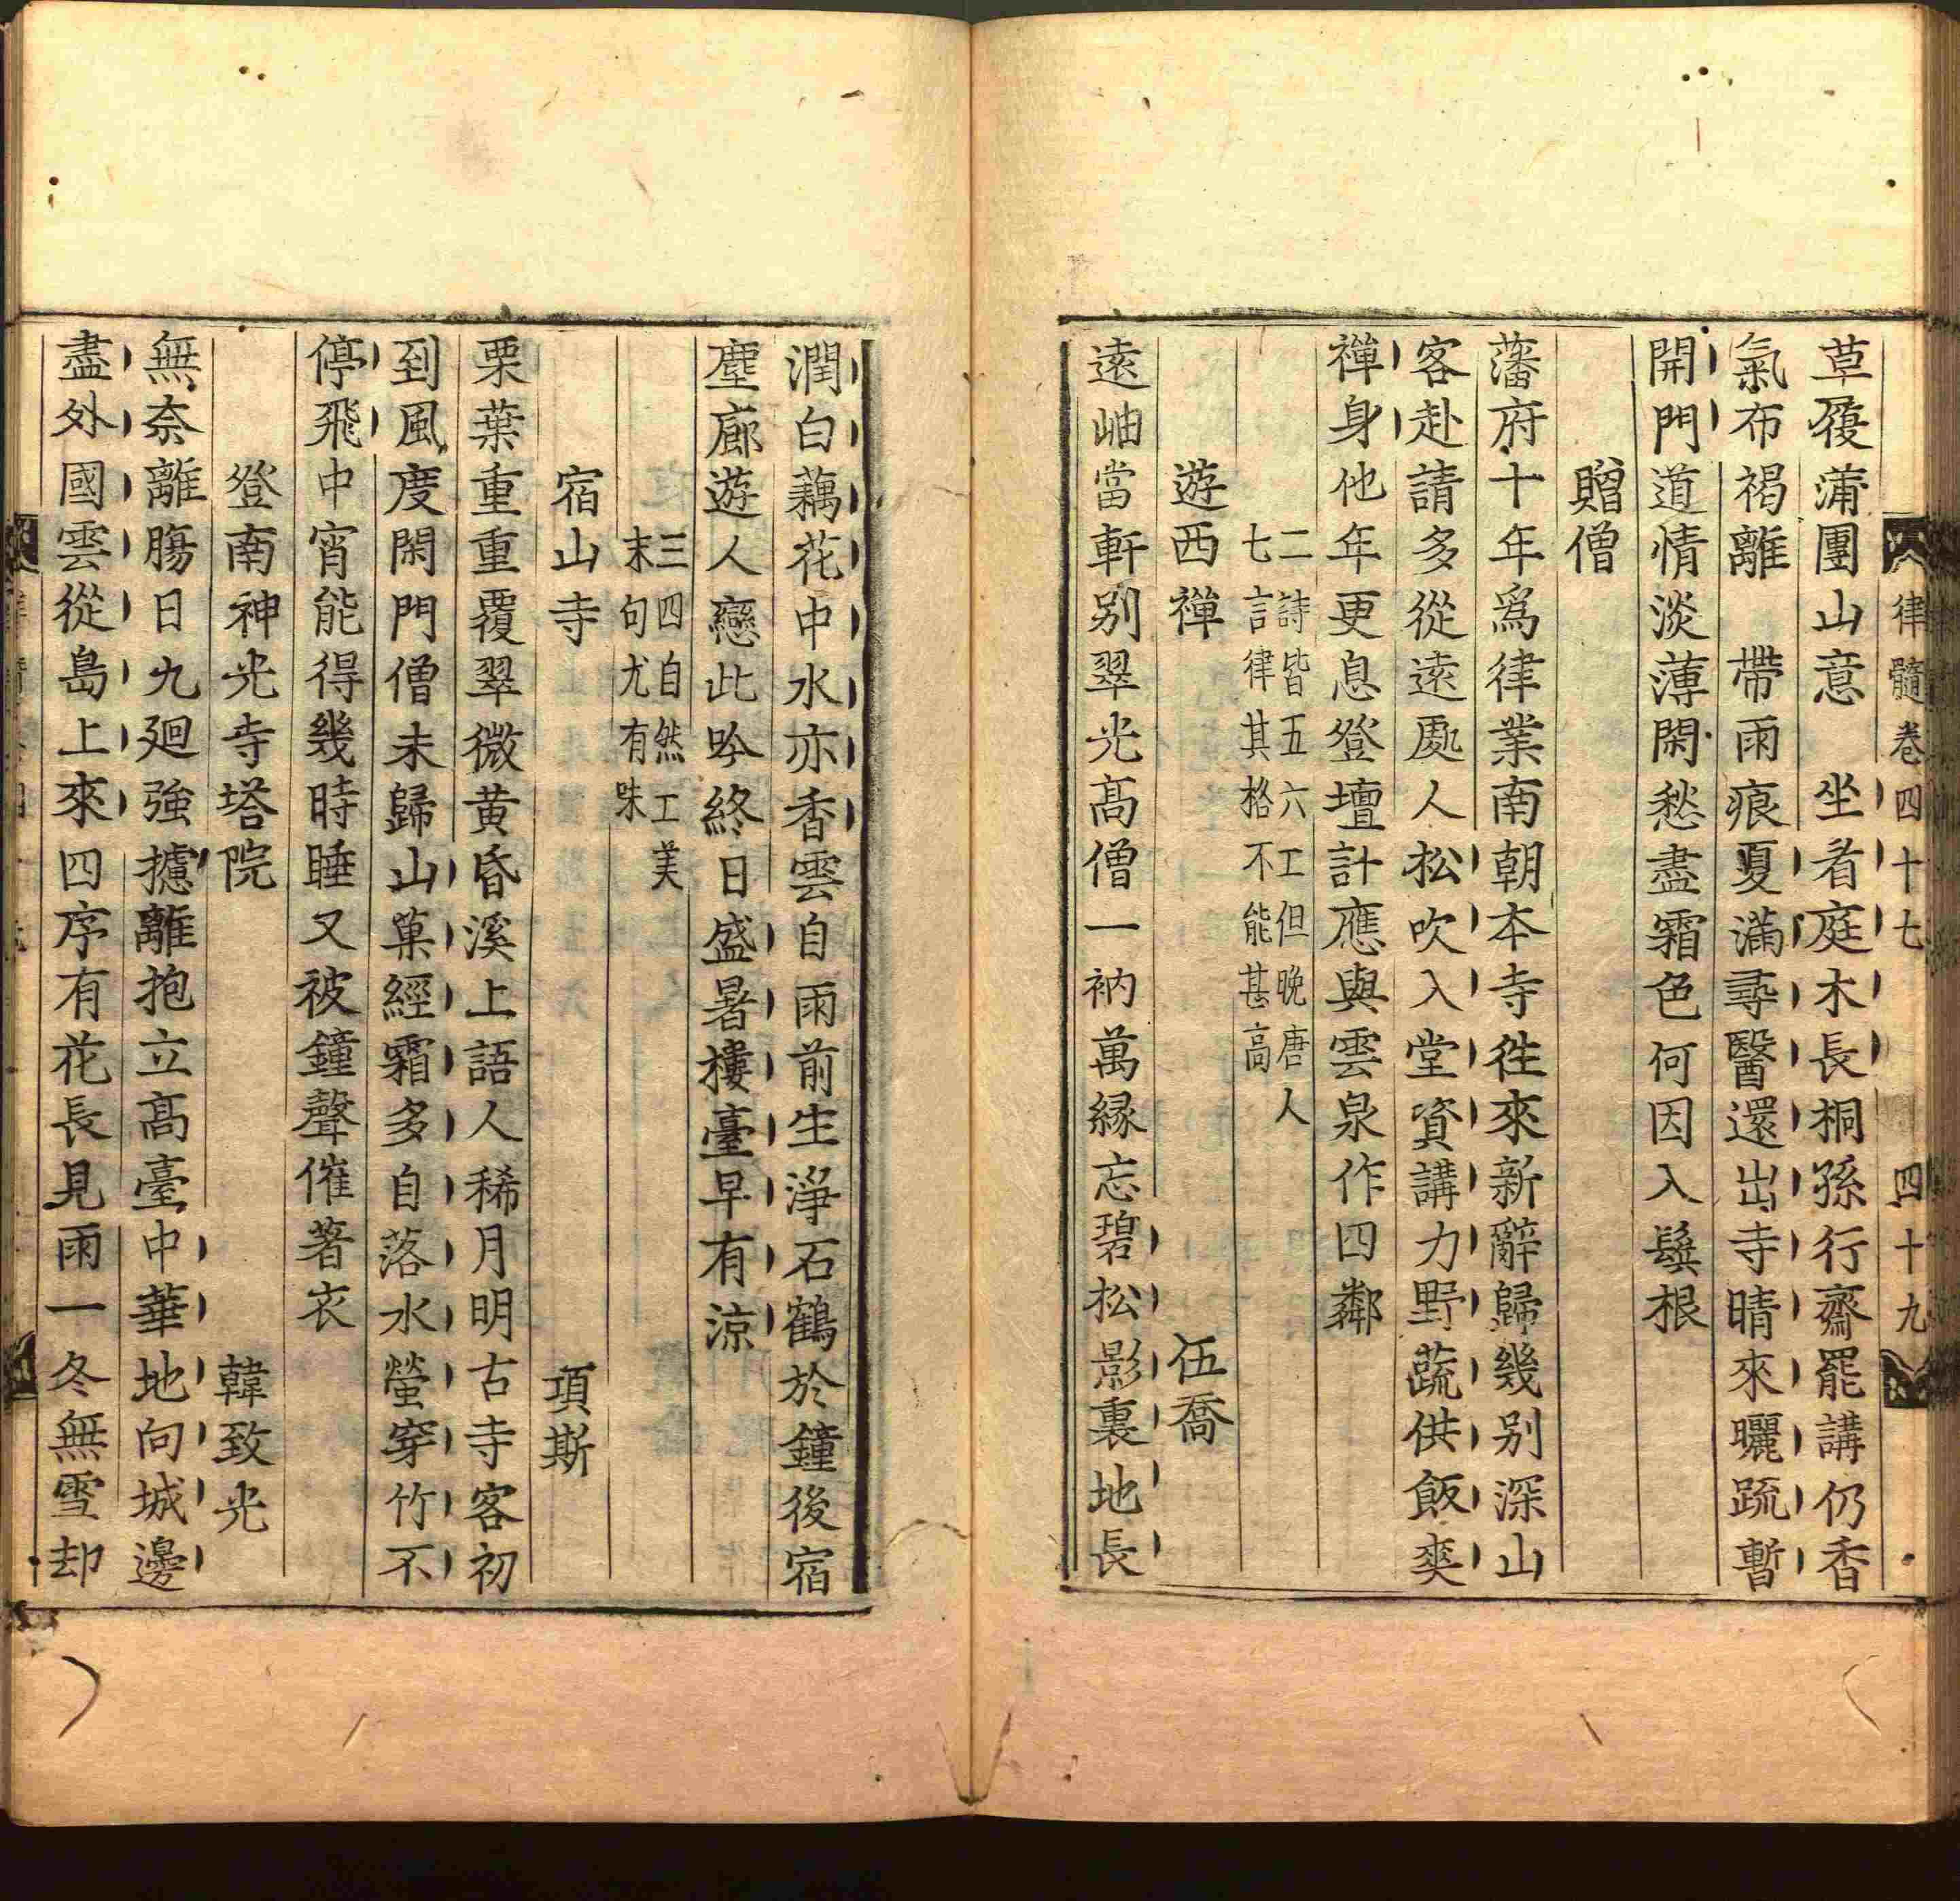 律髓卷四十七　四十九
草履蒲團山意　坐看庭木長桐孫行齋罷講仍香
氣布褐離　帶雨痕夏滿尋醫還出寺晴來曬疏暫
開門道情淡薄閑愁盡霜色何因入鬢根
贈僧
藩府十年爲律業南朝本寺徃來新辭歸幾别深山
客赴請多從遠處人松吹入堂資講力野蔬供飯爽
禪身他年更息登壇計應與雲泉作四鄰
二詩皆五六工但晚唐人
七言律其格不能甚高
遊西禪　伍喬
遠岫當軒别翠光高僧一衲萬縁忘碧松影裏地長
潤白藕花中水亦香雲自雨前生淨石鶴於鐘後宿
塵廊遊人戀此吟終日盛暑樓臺早有涼
三四自然工美
末句尤有味
宿山寺　項斯
栗葉重重覆翠微黄昏溪上語人稀月明古寺客初
到風度閑門僧未歸山菓經霜多自落水螢穿竹不
停飛中宵能得幾時睡又被鐘聲催著衣
登南神光寺塔院　韓致光
無奈離膓日九廻強攄離抱立高臺中華地向城邊
盡外國雲從島上來四序有花長見雨一冬無雪却